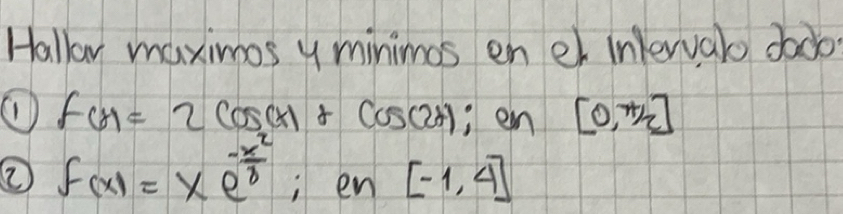 Hallar maximos y minimos en el intervalo dado:
① f(x) = 2 cos(x) + cos(2x); en [0, π/2]
② f(x) = x e^{-x²/8}; en [-1, 4]